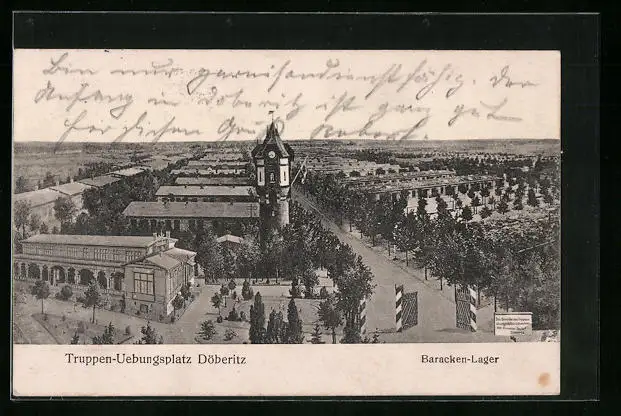 Bin nur garnisondienstfähig. Der
Anfang in Döberitz ist ganz gut
Herzlichen Gruß
Truppen-Uebungsplatz Döberitz
Baracken-Lager